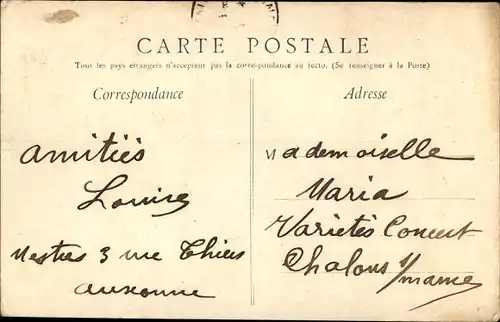 CARTE POSTALE
Tous les pays étrangers n'acceptent pas la correspondance au recto. (Se renseigner à la Poste)
Correspondance
amitiés
Louise
3 rue Thiers
auxonne
Adresse
Mademoiselle
Maria
Varietés Concert
Chalons s/marne